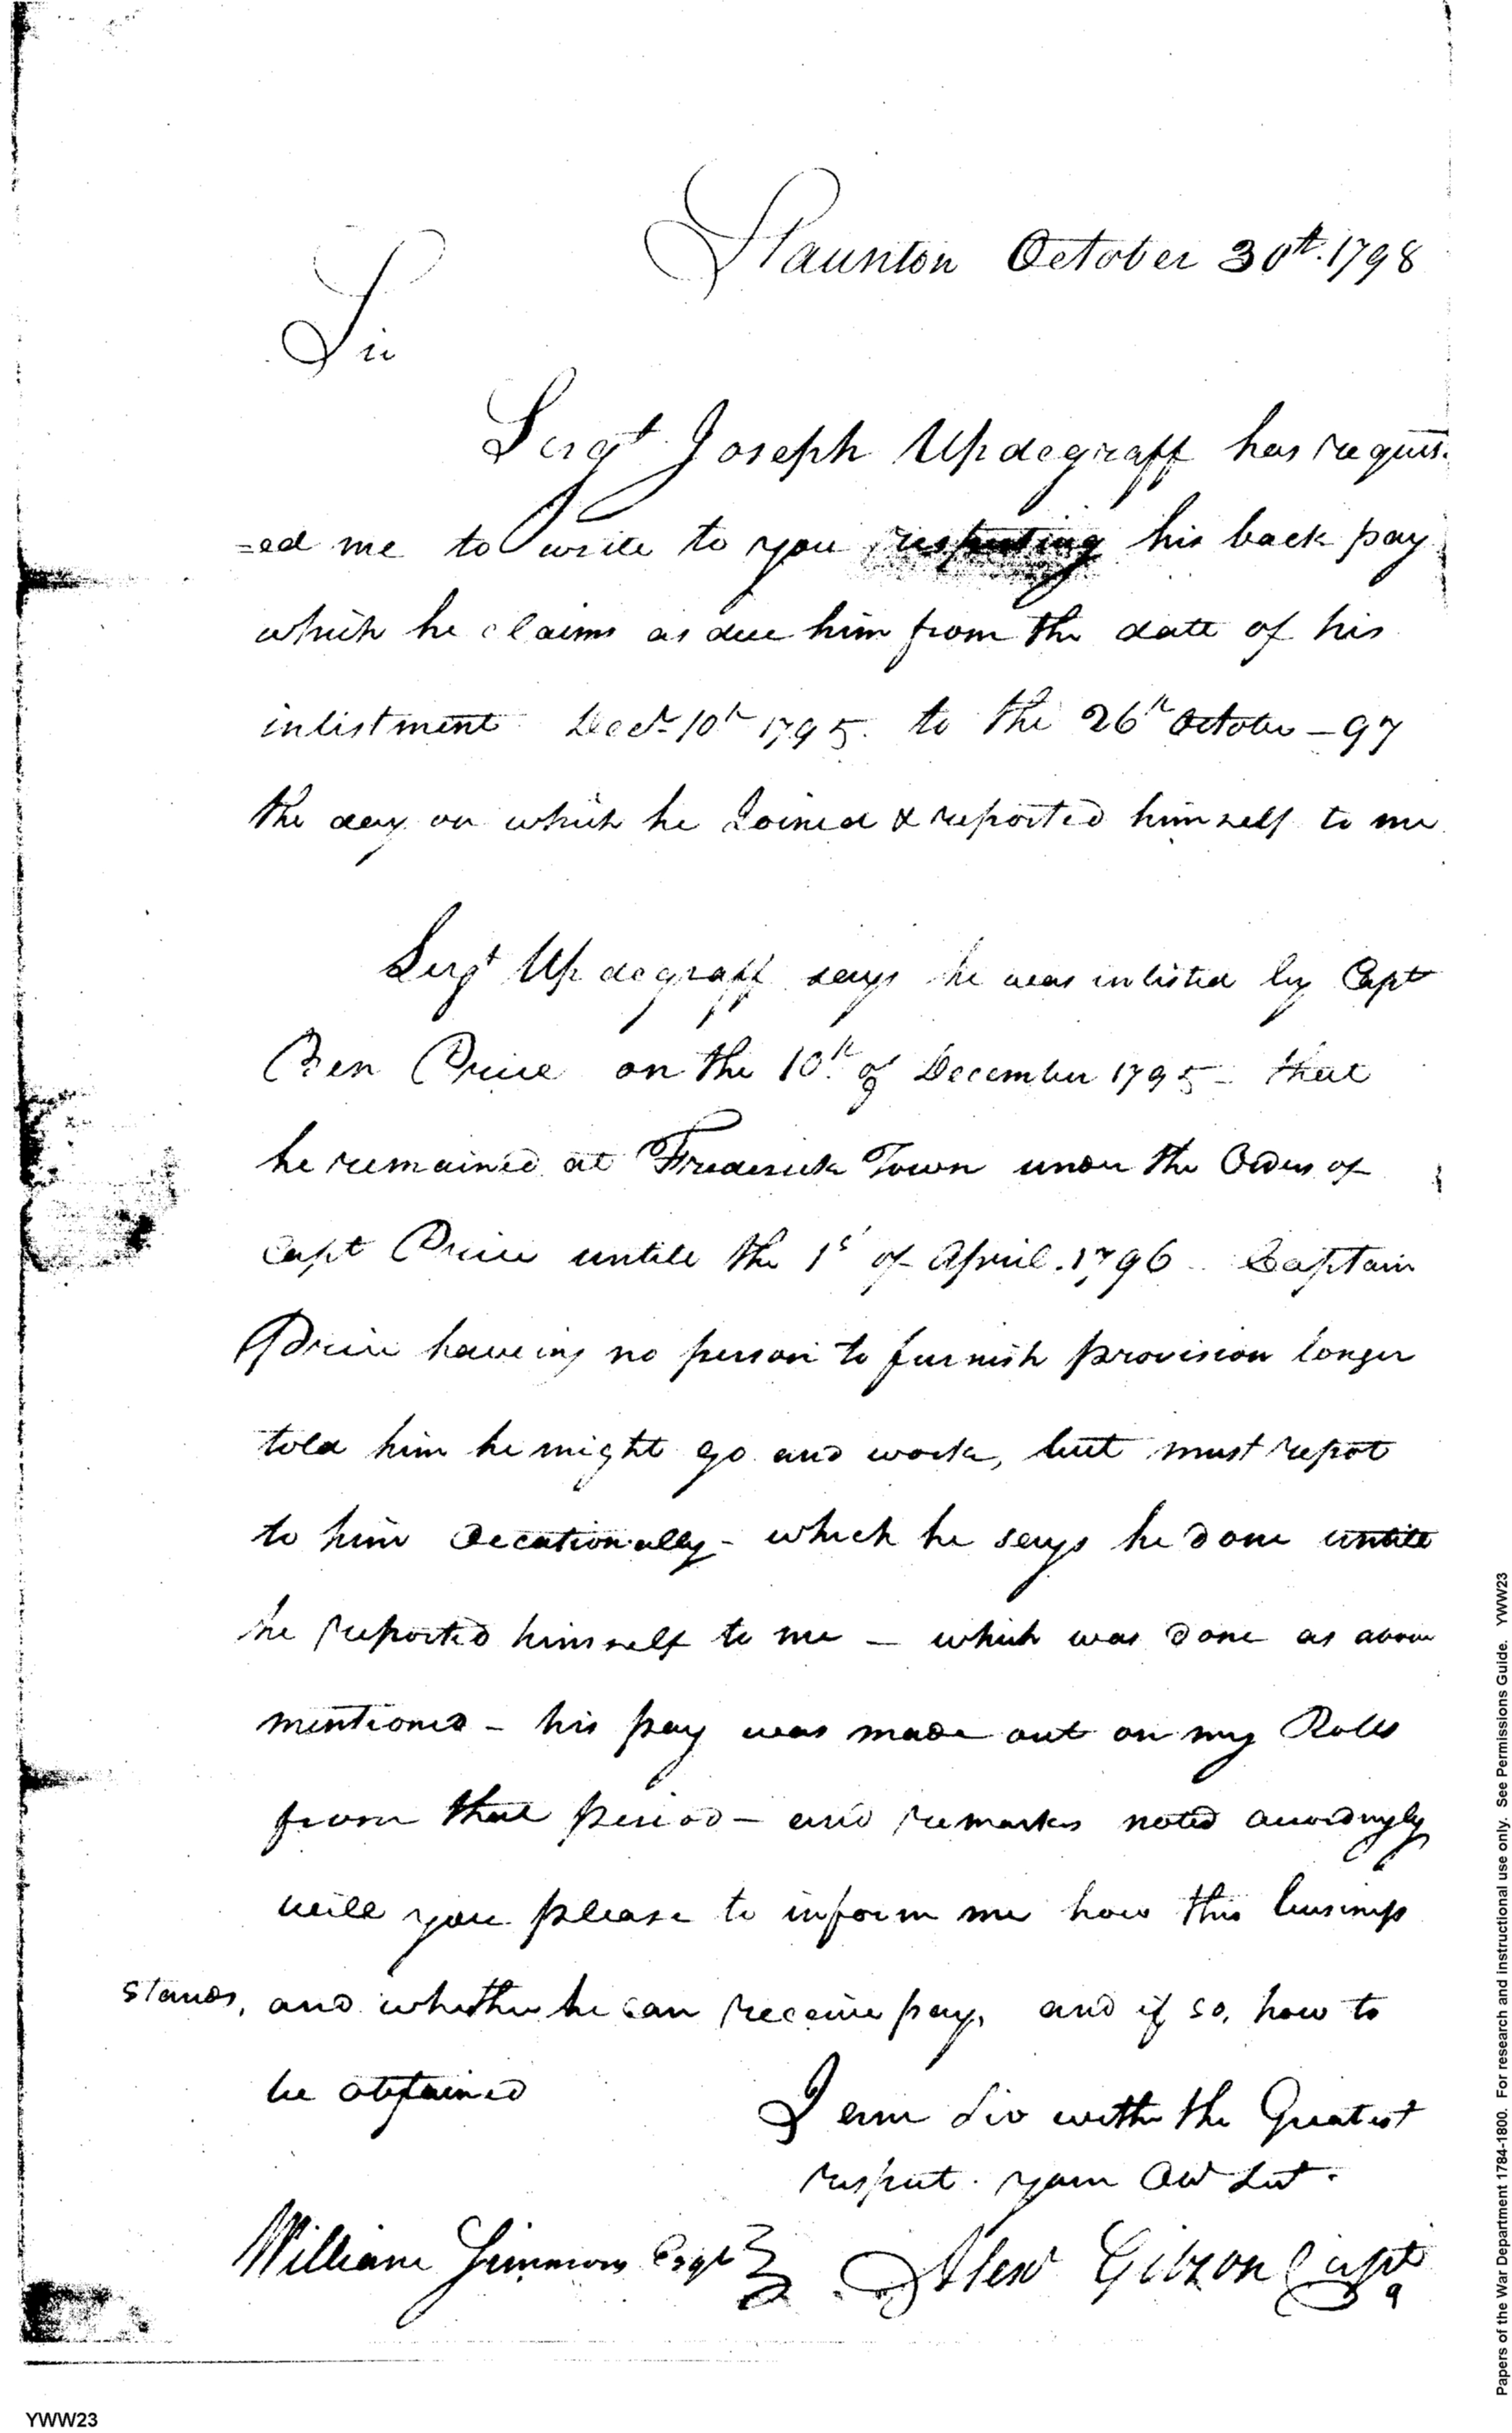 Staunton October 30th. 1798
Sir
Sergt Joseph Updegraff has request
=ed me to write to you respecting his back pay
which he claims as due him from the date of his
inlistment Decr 10th 1795. to the 26th October - 97
the day on which he Joined & reported himself to me
Sergt Updegraff says he was inlisted by Capt
Ben Price on the 10th of December 1795 - that
he remained at Frederick Town under the Orders of
Capt Price untill the 1st of April. 1796 - Captain
Price haveing no person to furnish provision longer
told him he might go and work, but must repot
to him Occationally - which he says he done untill
he reported himself to me - which was done as above
mentioned - his pay was made out on my Rolls
from that period - and remarks noted accordingly
will you please to inform me how this business
stands, and whether he can receive pay, and if so, how to
be obtained
I am Sir with the Greatest
respect. your Obt Sert.
William Simmons Esqr
Alexr Gibson Capt
9
Papers of the War Department 1784-1800. For research and instructional use only. See Permissions Guide. YWW23
YWW23